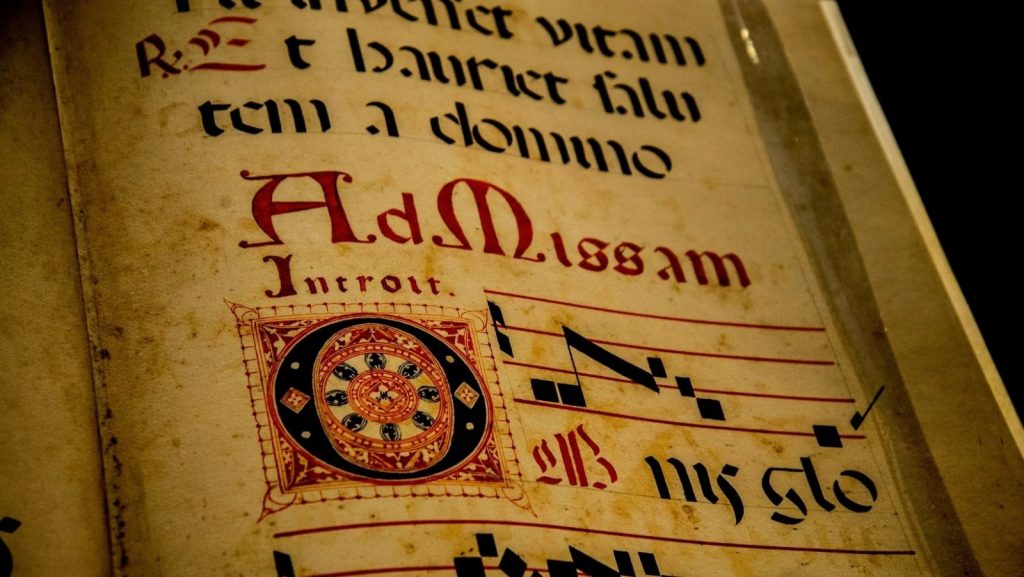 inveniet vitam
R. Et hauriet salu
tem a domino
Ad Missam
Introit.
OMnis glo